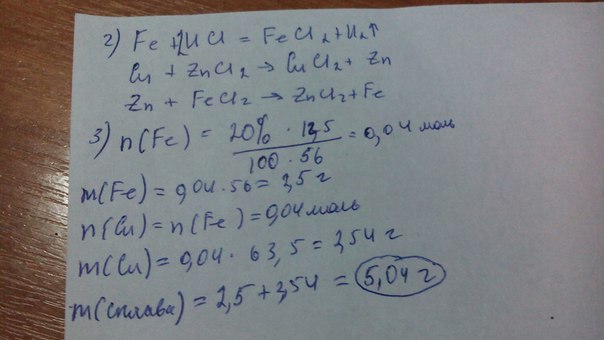 2) Fe + 2HCl = FeCl₂ + H₂↑
Cu + ZnCl₂ → CuCl₂ + Zn
Zn + FeCl₂ → ZnCl₂ + Fe
3) n(Fe) = 20% · 12,5 / 100 · 56 = 0,04 моль
m(Fe) = 0,04 · 56 = 2,5 г
n(Cu) = n(Fe) = 0,04 моль
m(Cu) = 0,04 · 63,5 = 2,54 г
m(сплава) = 2,5 + 2,54 = 5,04 г